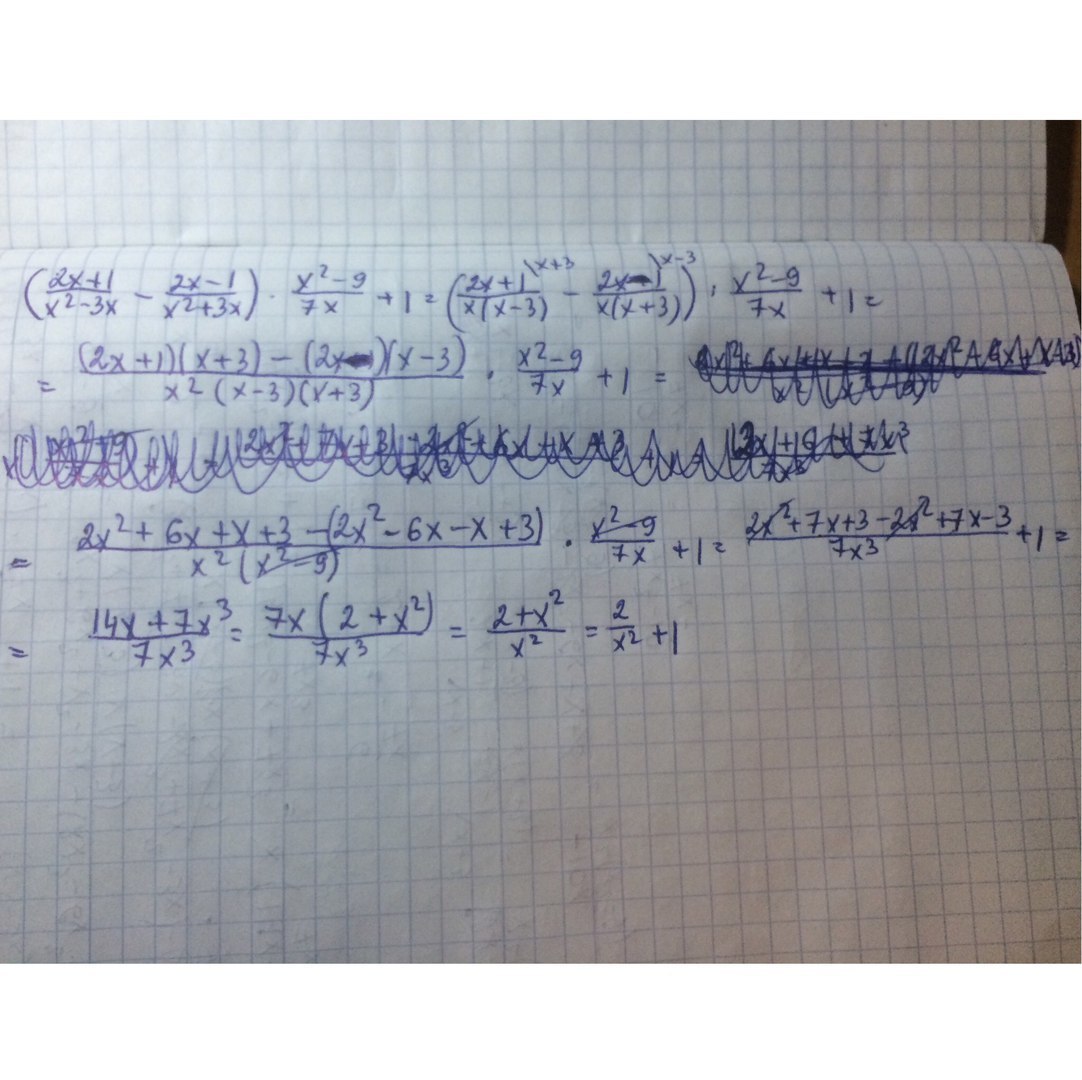 (2x+1/x²-3x - 2x-1/x²+3x) · x²-9/7x + 1 = (2x+1/x(x-3) \x+3 - 2x-1/x(x+3) \x-3) · x²-9/7x + 1 =
= (2x+1)(x+3) - (2x)(x-3)/x²(x-3)(x+3) · x²-9/7x + 1 =
= 2x²+6x+x+3-(2x²-6x-x+3)/x²(x²-9) · x²-9/7x + 1 = 2x²+7x+3-2x²+7x-3/7x³ + 1 =
= 14x+7x³/7x³ = 7x(2+x²)/7x³ = 2+x²/x² = 2/x² + 1